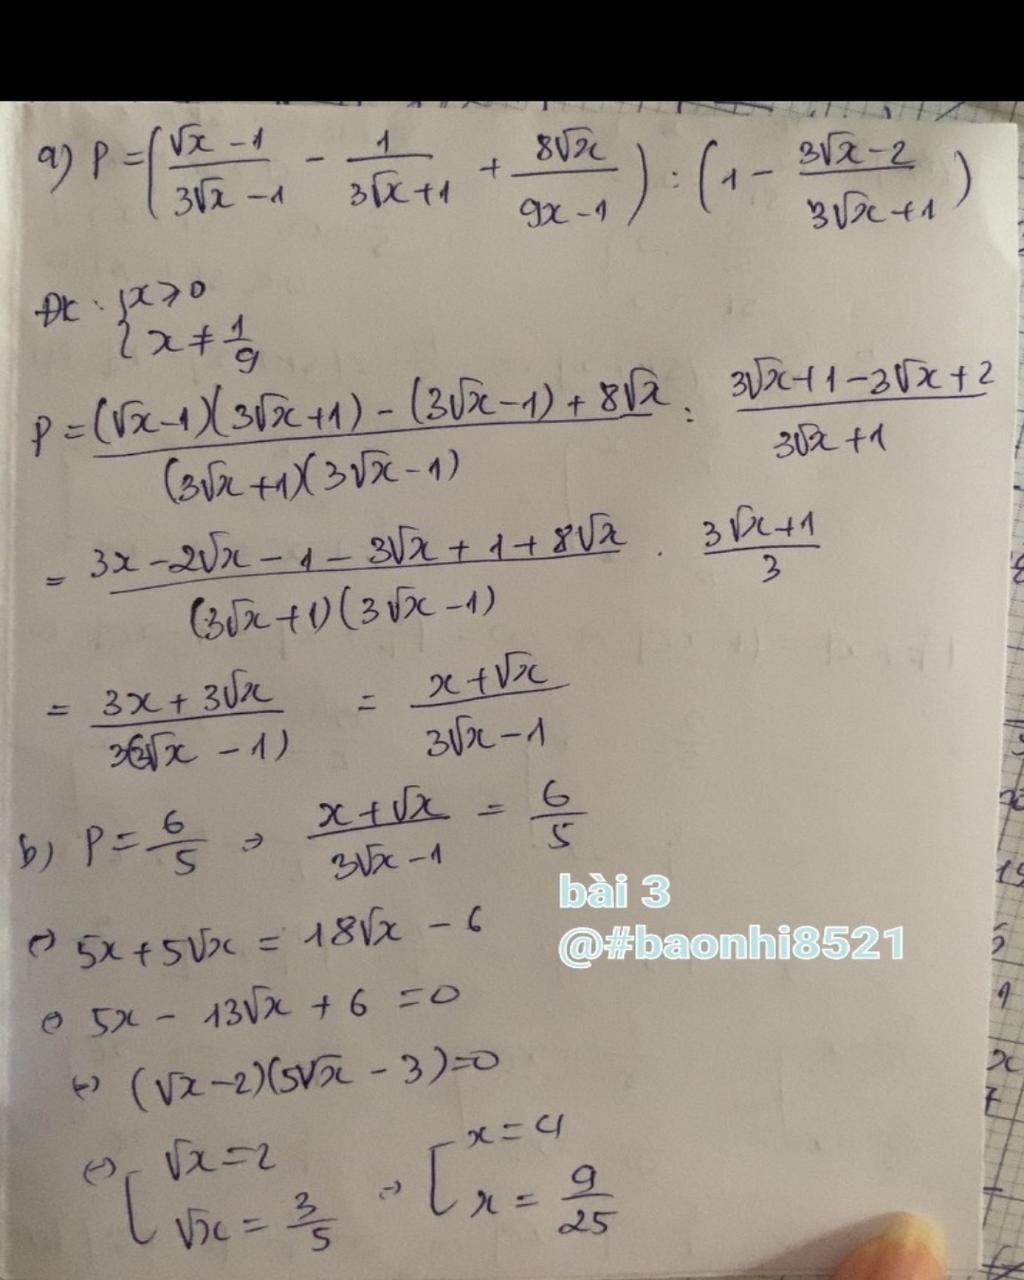 a) P = ( (√x - 1)/(3√x - 1) - 1/(3√x + 1) + 8√x/(9x - 1) ) : ( 1 - (3√x - 2)/(3√x + 1) )
ĐK : { x ≥ 0
{ x ≠ 1/9
P = ((√x - 1)(3√x + 1) - (3√x - 1) + 8√x)/((3√x + 1)(3√x - 1)) : (3√x + 1 - 3√x + 2)/(3√x + 1)
= (3x - 2√x - 1 - 3√x + 1 + 8√x)/((3√x + 1)(3√x - 1)) . (3√x + 1)/3
= (3x + 3√x)/(3(3√x - 1)) = (x + √x)/(3√x - 1)
b) P = 6/5 → (x + √x)/(3√x - 1) = 6/5
⇔ 5x + 5√x = 18√x - 6
⇔ 5x - 13√x + 6 = 0
⇔ (√x - 2)(5√x - 3) = 0
⇔ [ √x = 2 → [ x = 4
[ √x = 3/5 [ x = 9/25
bài 3
@#baonhi8521